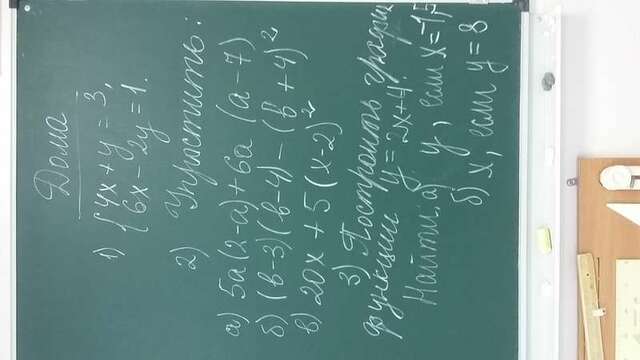 Дома
1) {4x + y = 3,
{6x - 2y = 1.
2) Упростить:
а) 5a(2-a)+6a (a-7)
б) (b-3)(b-4) - (b+4)²
в) 20x + 5(x-2)²
3) Построить график
функции y = 2x+4.
Найти: а) y, если x=-1,5
б) x, если y = 8